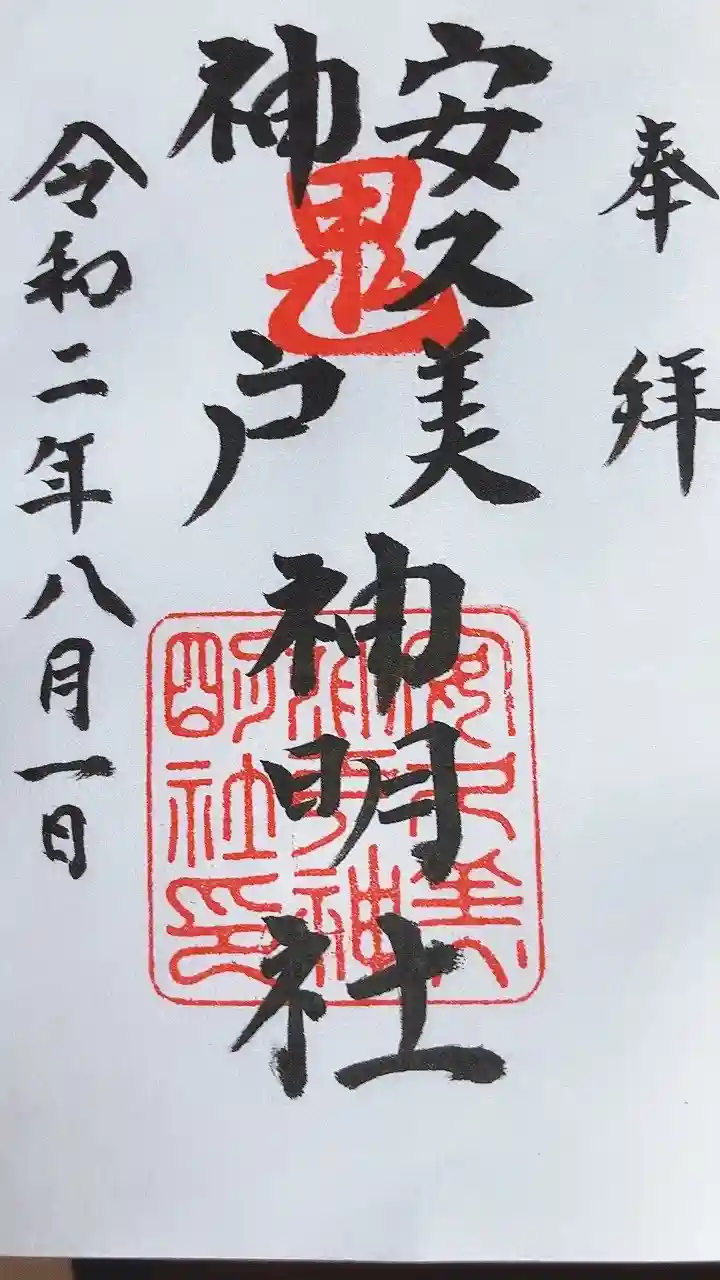 奉拝
安久美
神戸
神明社
鬼
安久美
神戸神
明社印
令和二年八月一日